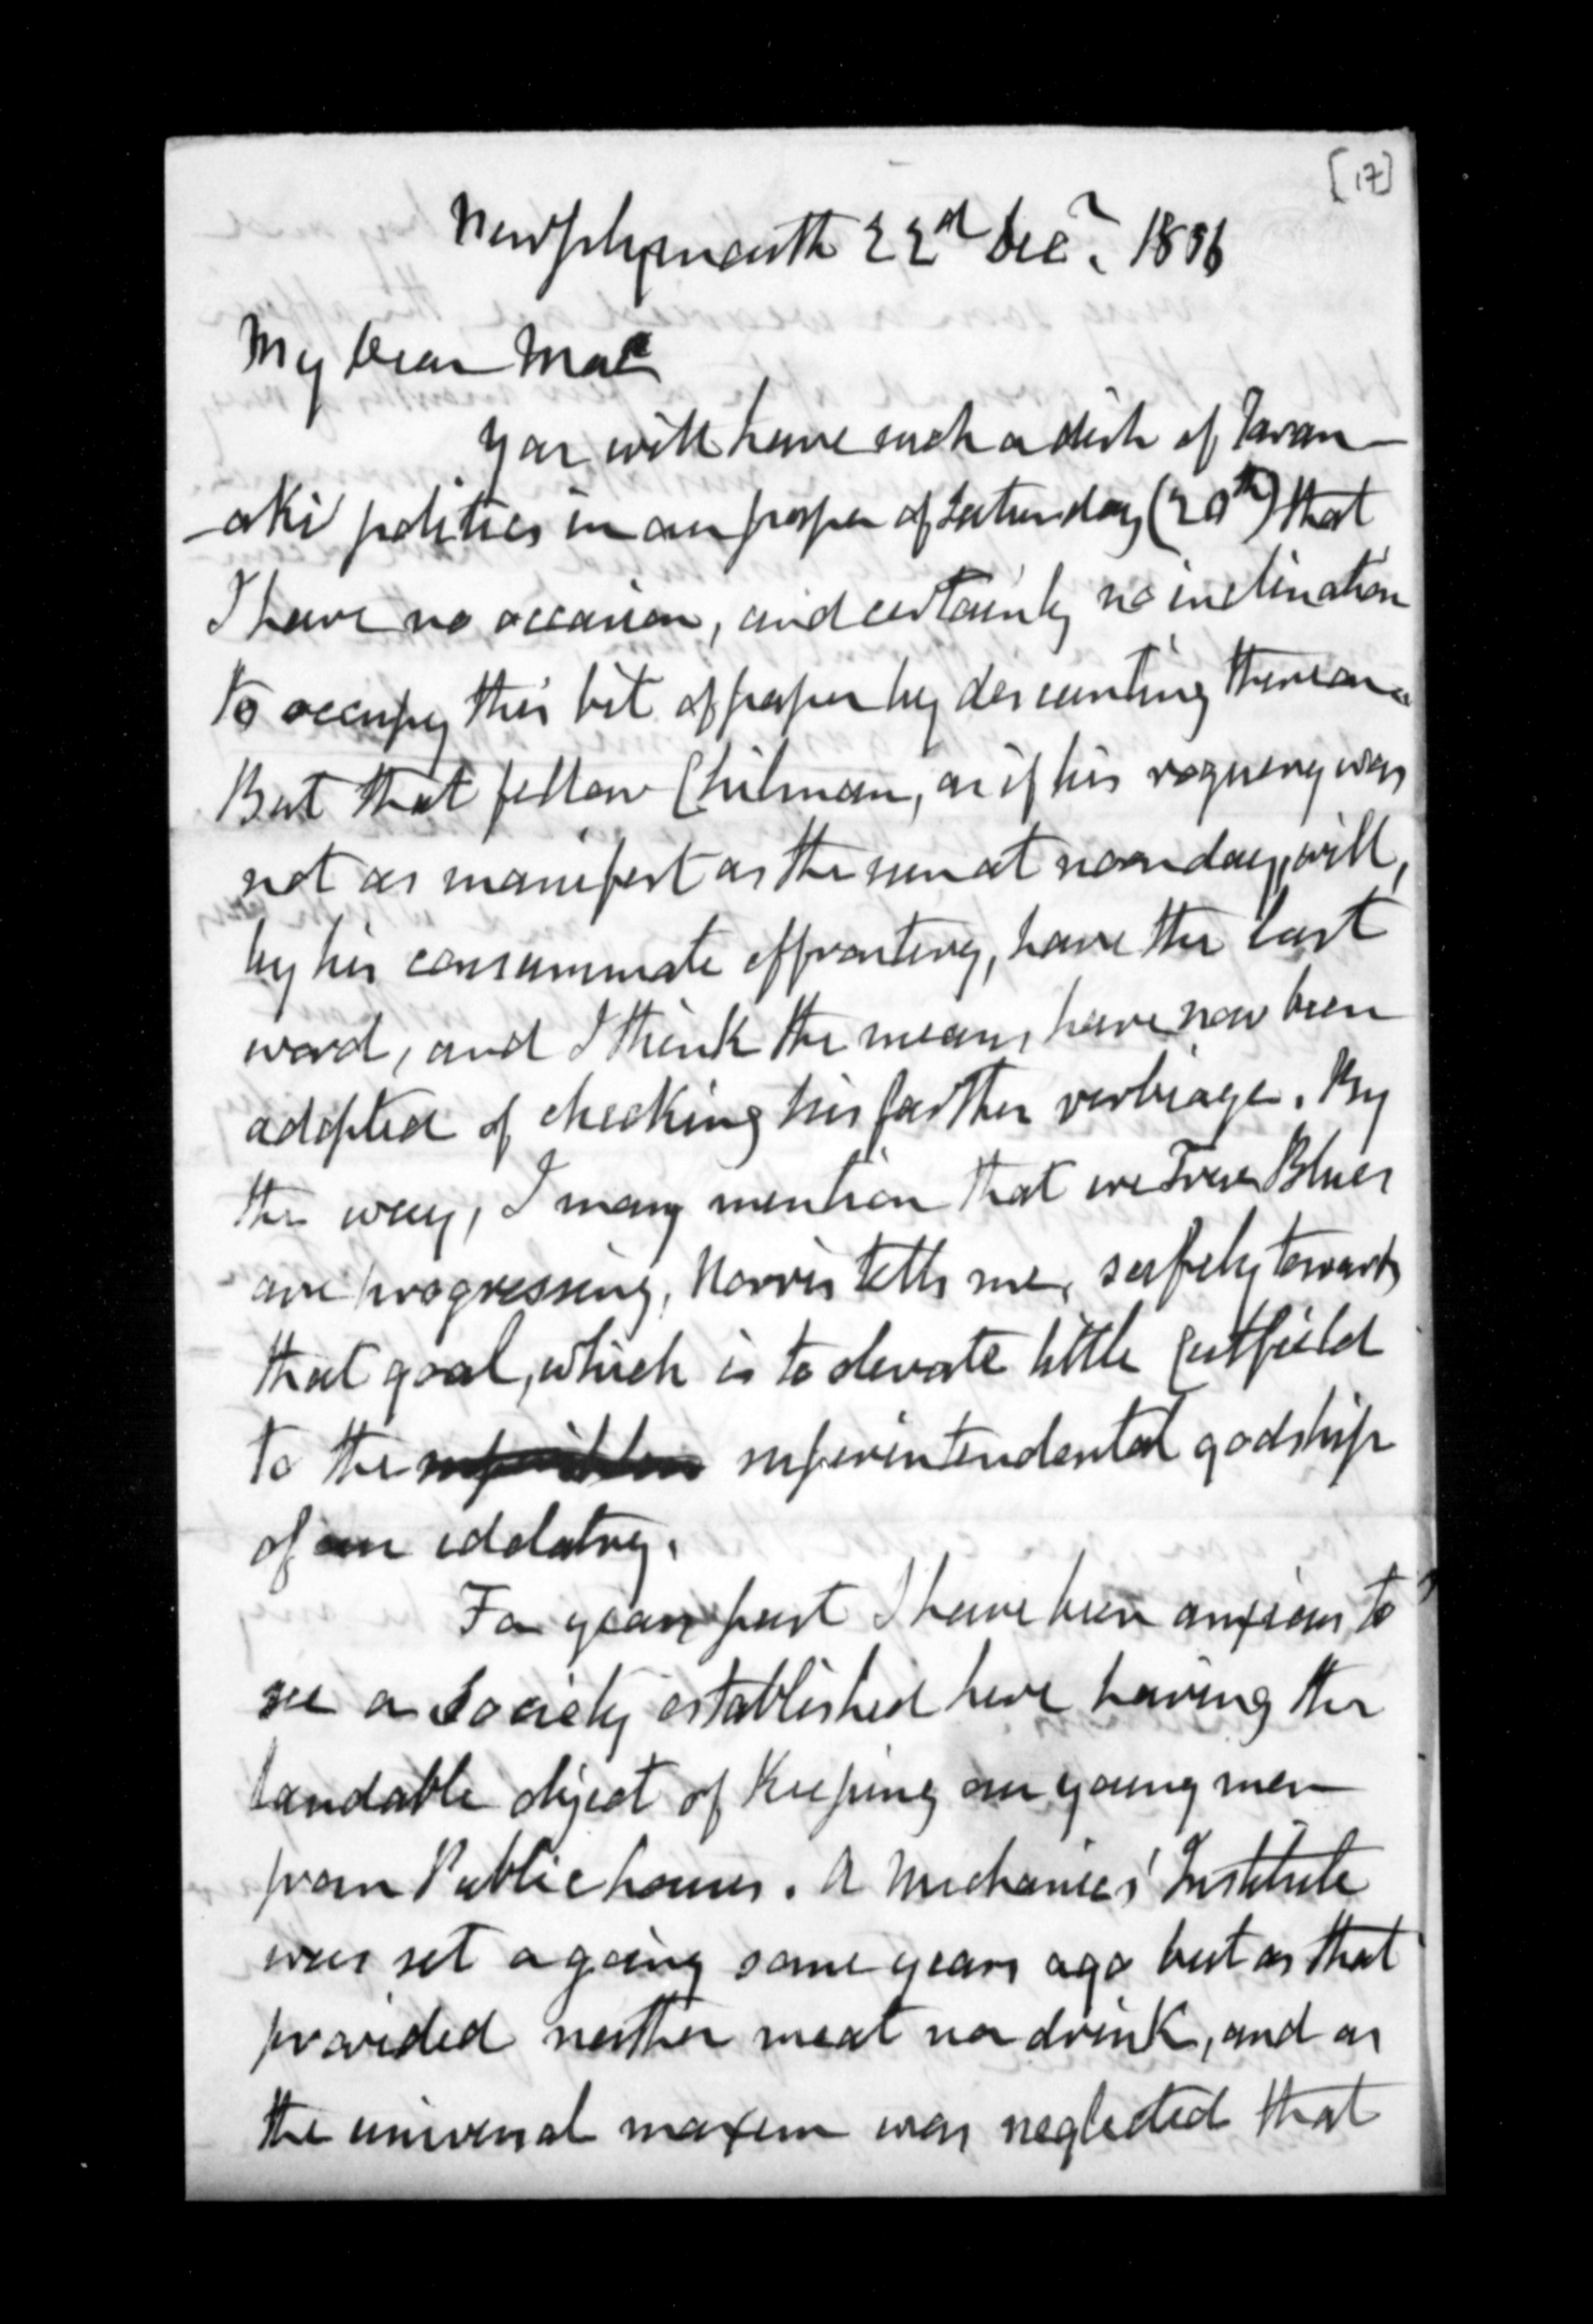 [17]
New Plymouth 22nd Decr. 1856
My dear Mac
You will have such a dish of Taran-
-aki politics in our paper of Saturday (20th) that
I have no occasion, and certainly no inclination
to occupy this bit of paper by descanting thereon.
But that fellow Chilman, as if his roguery was
not as manifest as the sun at noonday, will,
by his consummate effrontery, have the last
word, and I think the means have now been
adopted of checking his farther verbiage. By
the way, I may mention that we True Blues
are progressing, Norris tells me, safely towards
that goal, which is to elevate little Cutfield
to the superintendental godship
of our idolatry.
For years past I have been anxious to
see a Society established here having the
laudable object of keeping our young men
from Public houses. A Mechanics' Institute
was set agoing some years ago but as that
provided neither meat nor drink, and as
the universal maxim was neglected that